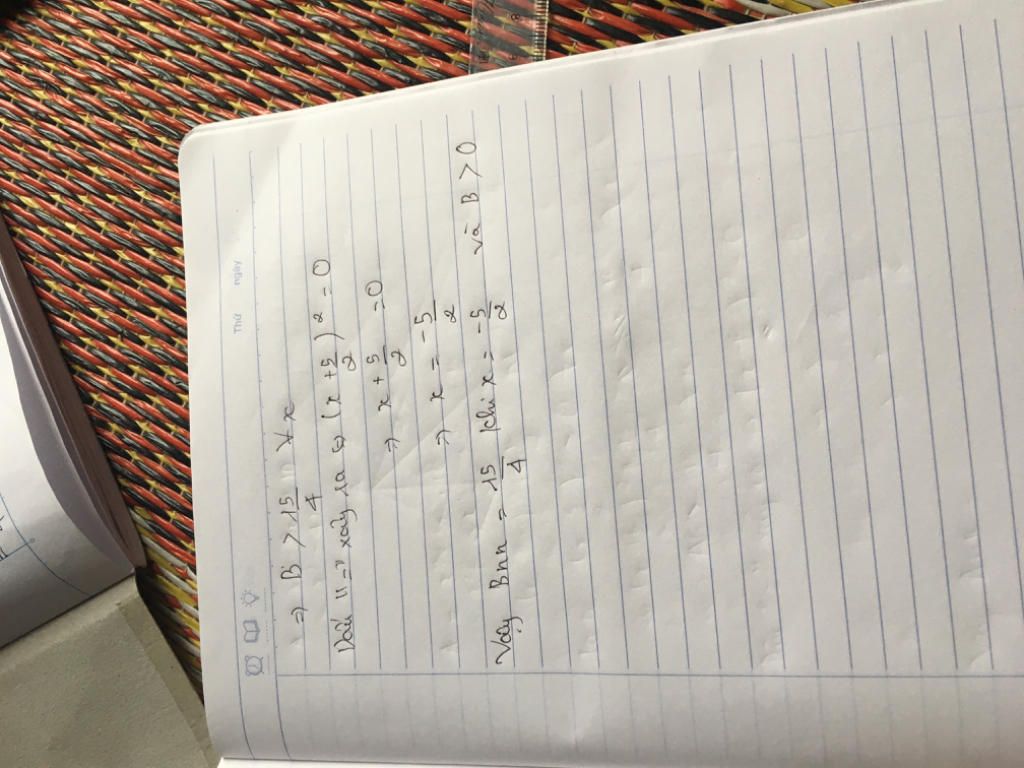 Thứ ngày
=> B > 15/4 ∀ x
Dấu "=" xảy ra <=> (x + 5/2)² = 0
=> x + 5/2 = 0
=> x = -5/2
Vậy Bnn = 15/4 khi x = -5/2 và B > 0